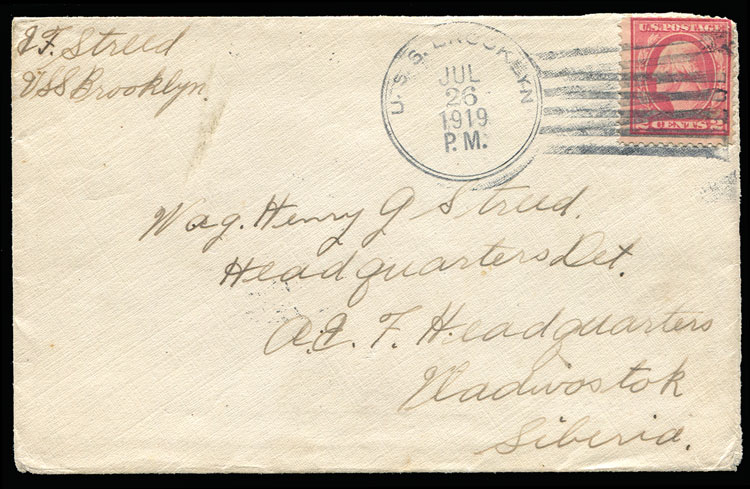 J.F. Streed
USS Brooklyn.
U.S.S. BROOKLYN
JUL
26
1919
P.M.
U.S. POSTAGE
2 CENTS 2
Wag. Henry G Streed.
Headquarters Det.
A.E.F. Headquarters
Vladivostok
Siberia.